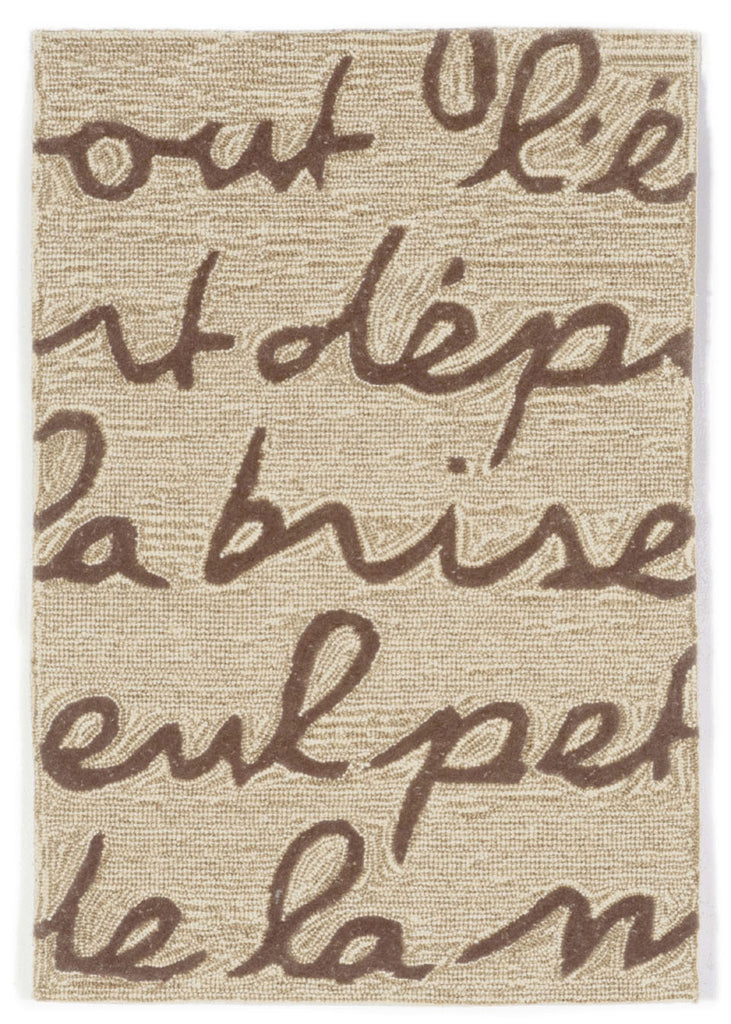 out l'é
rt dép
la brise
eul pet
te la m